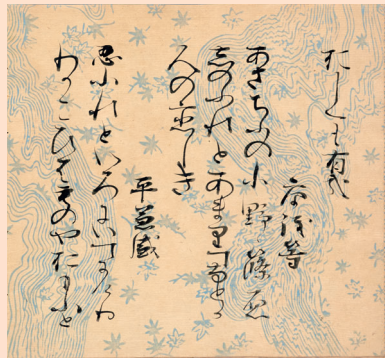 おしくも有哉
参議等
あさちふの小野ゝ篠原
しのふれとあまりてなとか
人の恋しき
平兼盛
忍ふれといろにいてにけり
わかこひはものやおもふと